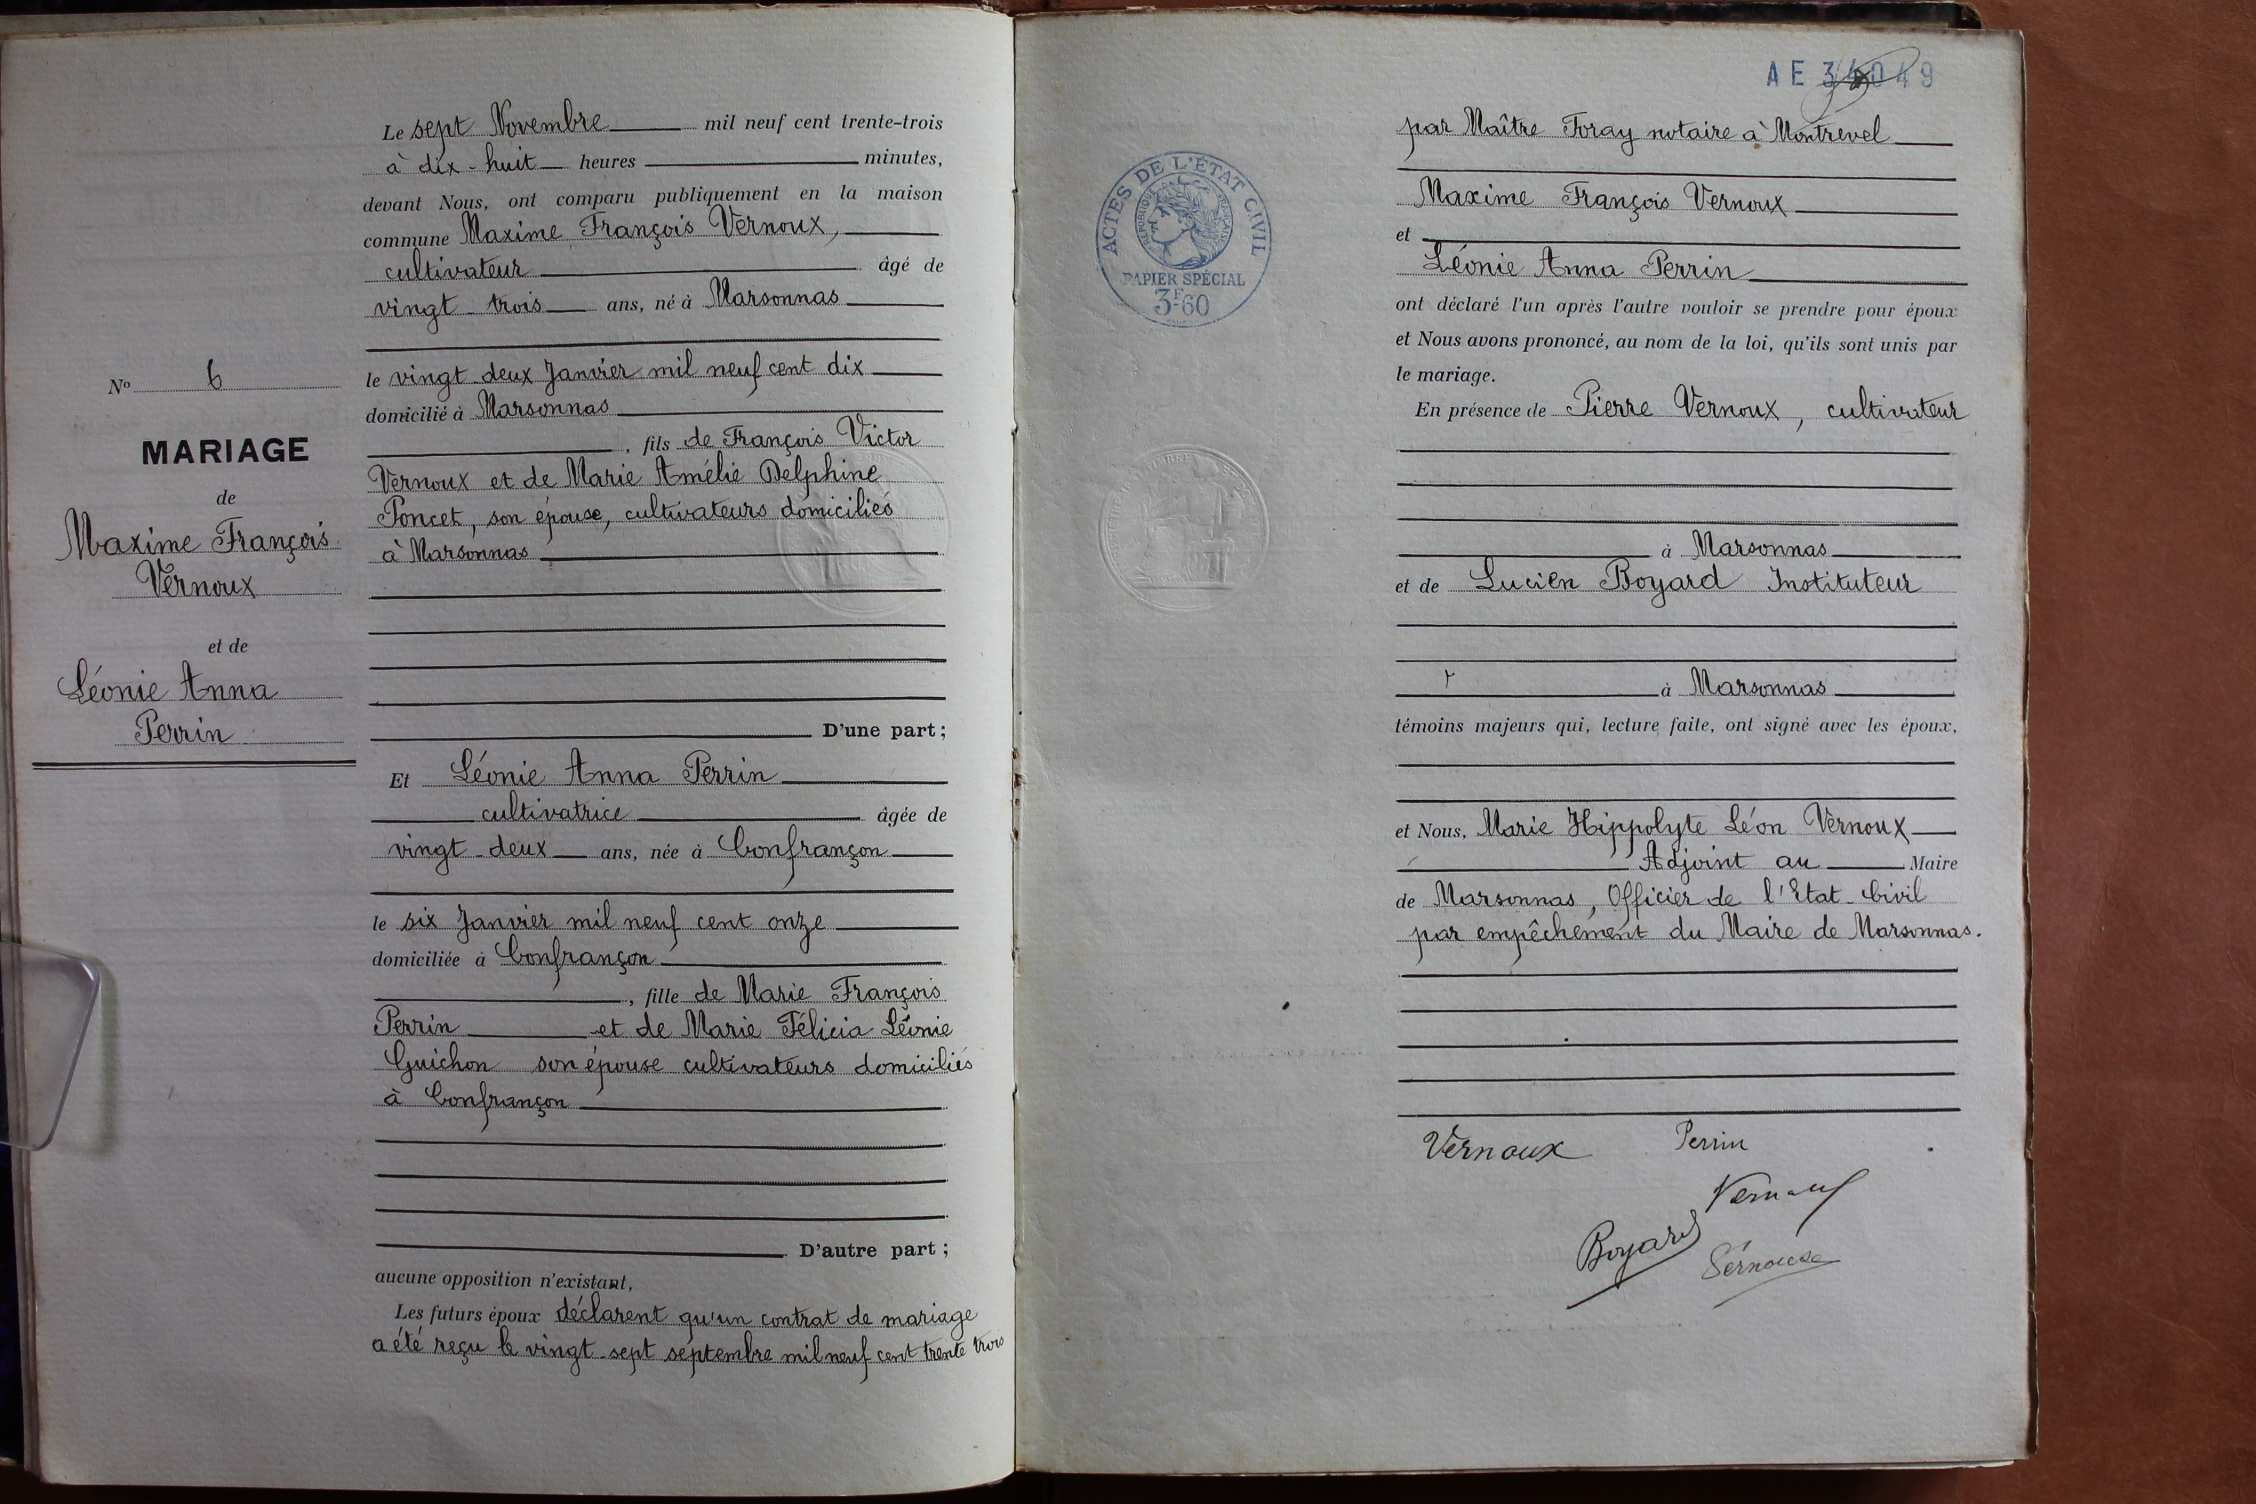 Nº 6
MARIAGE
de
Maxime François
Vernoux
et de
Léonie Anna
Perrin
Le sept Novembre mil neuf cent trente-trois
à dix-huit heures minutes,
devant Nous, ont comparu publiquement en la maison
commune Maxime François Vernoux,
cultivateur âgé de
vingt-trois ans, né à Marsonnas
le vingt-deux Janvier mil neuf cent dix
domicilié à Marsonnas
, fils de François Victor
Vernoux et de Marie Amélie Delphine
Poncet, son épouse, cultivateurs domiciliés
à Marsonnas
D'une part ;
Et Léonie Anna Perrin
cultivatrice âgée de
vingt-deux ans, née à Confrançon
le six Janvier mil neuf cent onze
domiciliée à Confrançon
, fille de Marie François
Perrin et de Marie Félicia Léonie
Guichon son épouse cultivateurs domiciliés
à Confrançon
D'autre part ;
aucune opposition n'existant,
Les futurs époux déclarent qu'un contrat de mariage
a été reçu le vingt-sept septembre mil neuf cent trente trois
AE
ACTES DE L'ÉTAT CIVIL
RÉPUBLIQUE FRANÇAISE
PAPIER SPÉCIAL
3F60
par Maître Foray notaire à Montrevel
Maxime François Vernoux
et
Léonie Anna Perrin
ont déclaré l'un après l'autre vouloir se prendre pour époux
et Nous avons prononcé, au nom de la loi, qu'ils sont unis par
le mariage.
En présence de Pierre Vernoux, cultivateur
à Marsonnas
et de Lucien Boyard Instituteur
à Marsonnas
témoins majeurs qui, lecture faite, ont signé avec les époux,
et Nous, Marie Hippolyte Léon Vernoux
Adjoint au Maire
de Marsonnas, Officier de l'Etat-Civil
par empêchement du Maire de Marsonnas.
Vernoux Perrin
Vernoux
Boyard